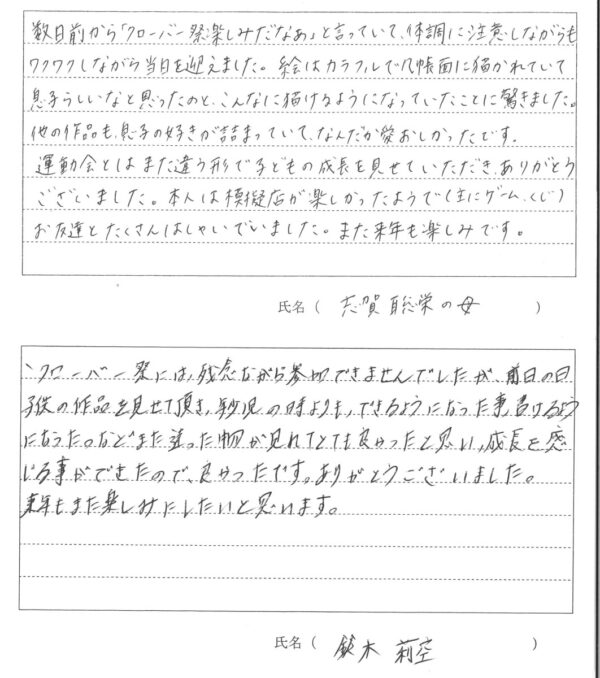 数日前から「クローバー祭楽しみだなぁ」と言っていて、体調に注意しながらも
ワクワクしながら当日を迎えました。絵はカラフルで几帳面に描かれていて
息子らしいなと思ったのと、こんなに描けるようになっていたことに驚きました。
他の作品も、息子の好きが詰まっていて、なんだか愛おしかったです。
運動会とはまた違う形で子どもの成長を見せていただき、ありがとう
ございました。本人は模擬店が楽しかったようで(主にゲーム、くじ)
お友達とたくさんはしゃいでいました。また来年も楽しみです。
氏名( 志賀 聡栄の母 )
クローバー祭には、残念ながら参加できませんでしたが、前日の日
子供の作品を見せて頂き、幼児の時よりも、できるようになった事、書けるよう
になった。などまた違った物が見れてとても良かったと思い、成長を感
じる事ができたので、良かったです。ありがとうございました。
来年もまた楽しみにしたいと思います。
氏名( 鈴木 莉空 )